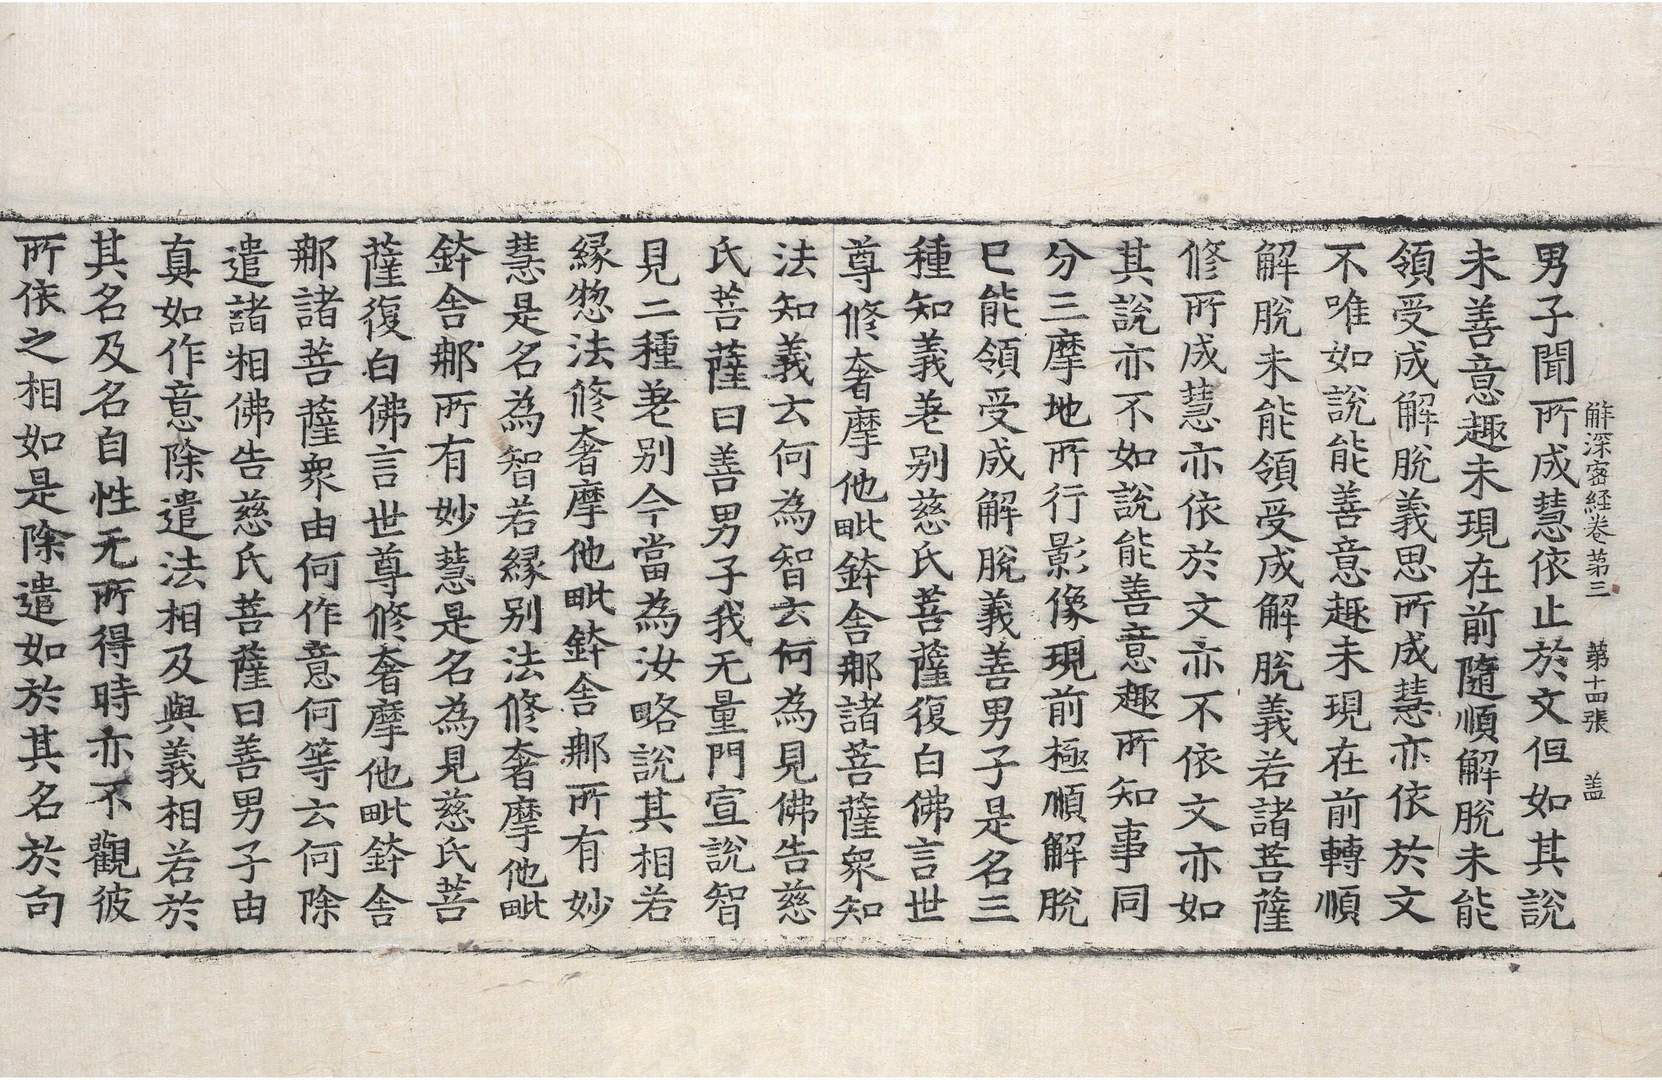 解深密経卷第三 第十四張 盖
男子聞所成慧依止於文但如其說
未善意趣未現在前隨順解脫未能
領受成解脫義思所成慧亦依於文
不唯如說能善意趣未現在前轉順
解脫未能領受成解脫義若諸菩薩
修所成慧亦依於文亦不依文亦如
其說亦不如說能善意趣所知事同
分三摩地所行影像現前極順解脫
已能領受成解脫義善男子是名三
種知義差別慈氏菩薩復白佛言世
尊修奢摩他毗鉢舍那諸菩薩衆知
法知義云何為智云何為見佛告慈
氏菩薩曰善男子我无量門宣說智
見二種差別今當為汝略說其相若
緣惣法修奢摩他毗鉢舍那所有妙
慧是名為智若緣別法修奢摩他毗
鉢舍那所有妙慧是名為見慈氏菩
薩復白佛言世尊修奢摩他毗鉢舍
那諸菩薩衆由何作意何等云何除
遣諸相佛告慈氏菩薩曰善男子由
真如作意除遣法相及與義相若於
其名及名自性无所得時亦不觀彼
所依之相如是除遣如於其名於句